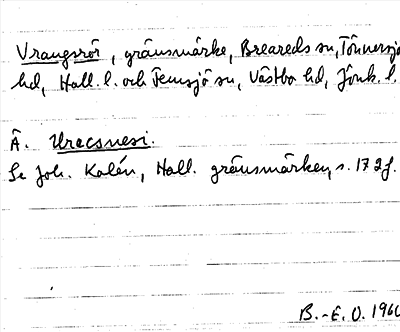 Vrangsrör, gränsmärke, Breareds sn, Tönnersjö
hd, Hall. l. och Femsjö sn, Västbo hd, Jönk. l.
Ä. Uracsnesi.
Se Joh. Kalén, Hall. gränsmärken, s. 172f.
B.-E. O. 1960